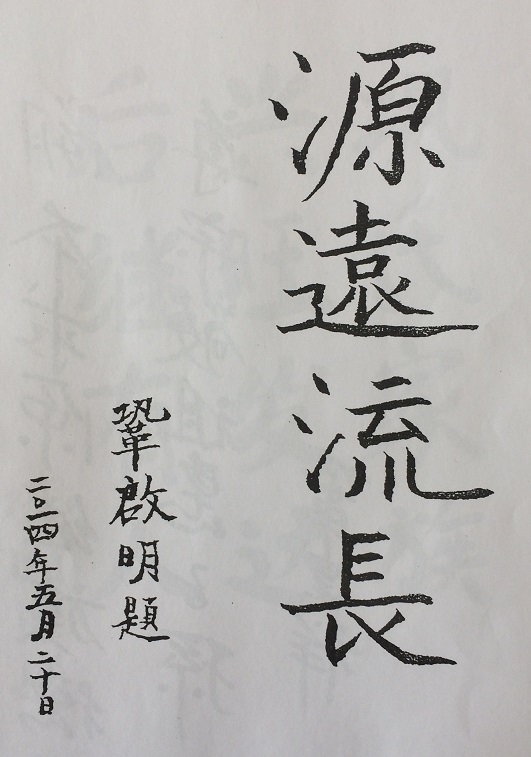 源遠流長
鞏啟明題
二〇一四年五月二十日